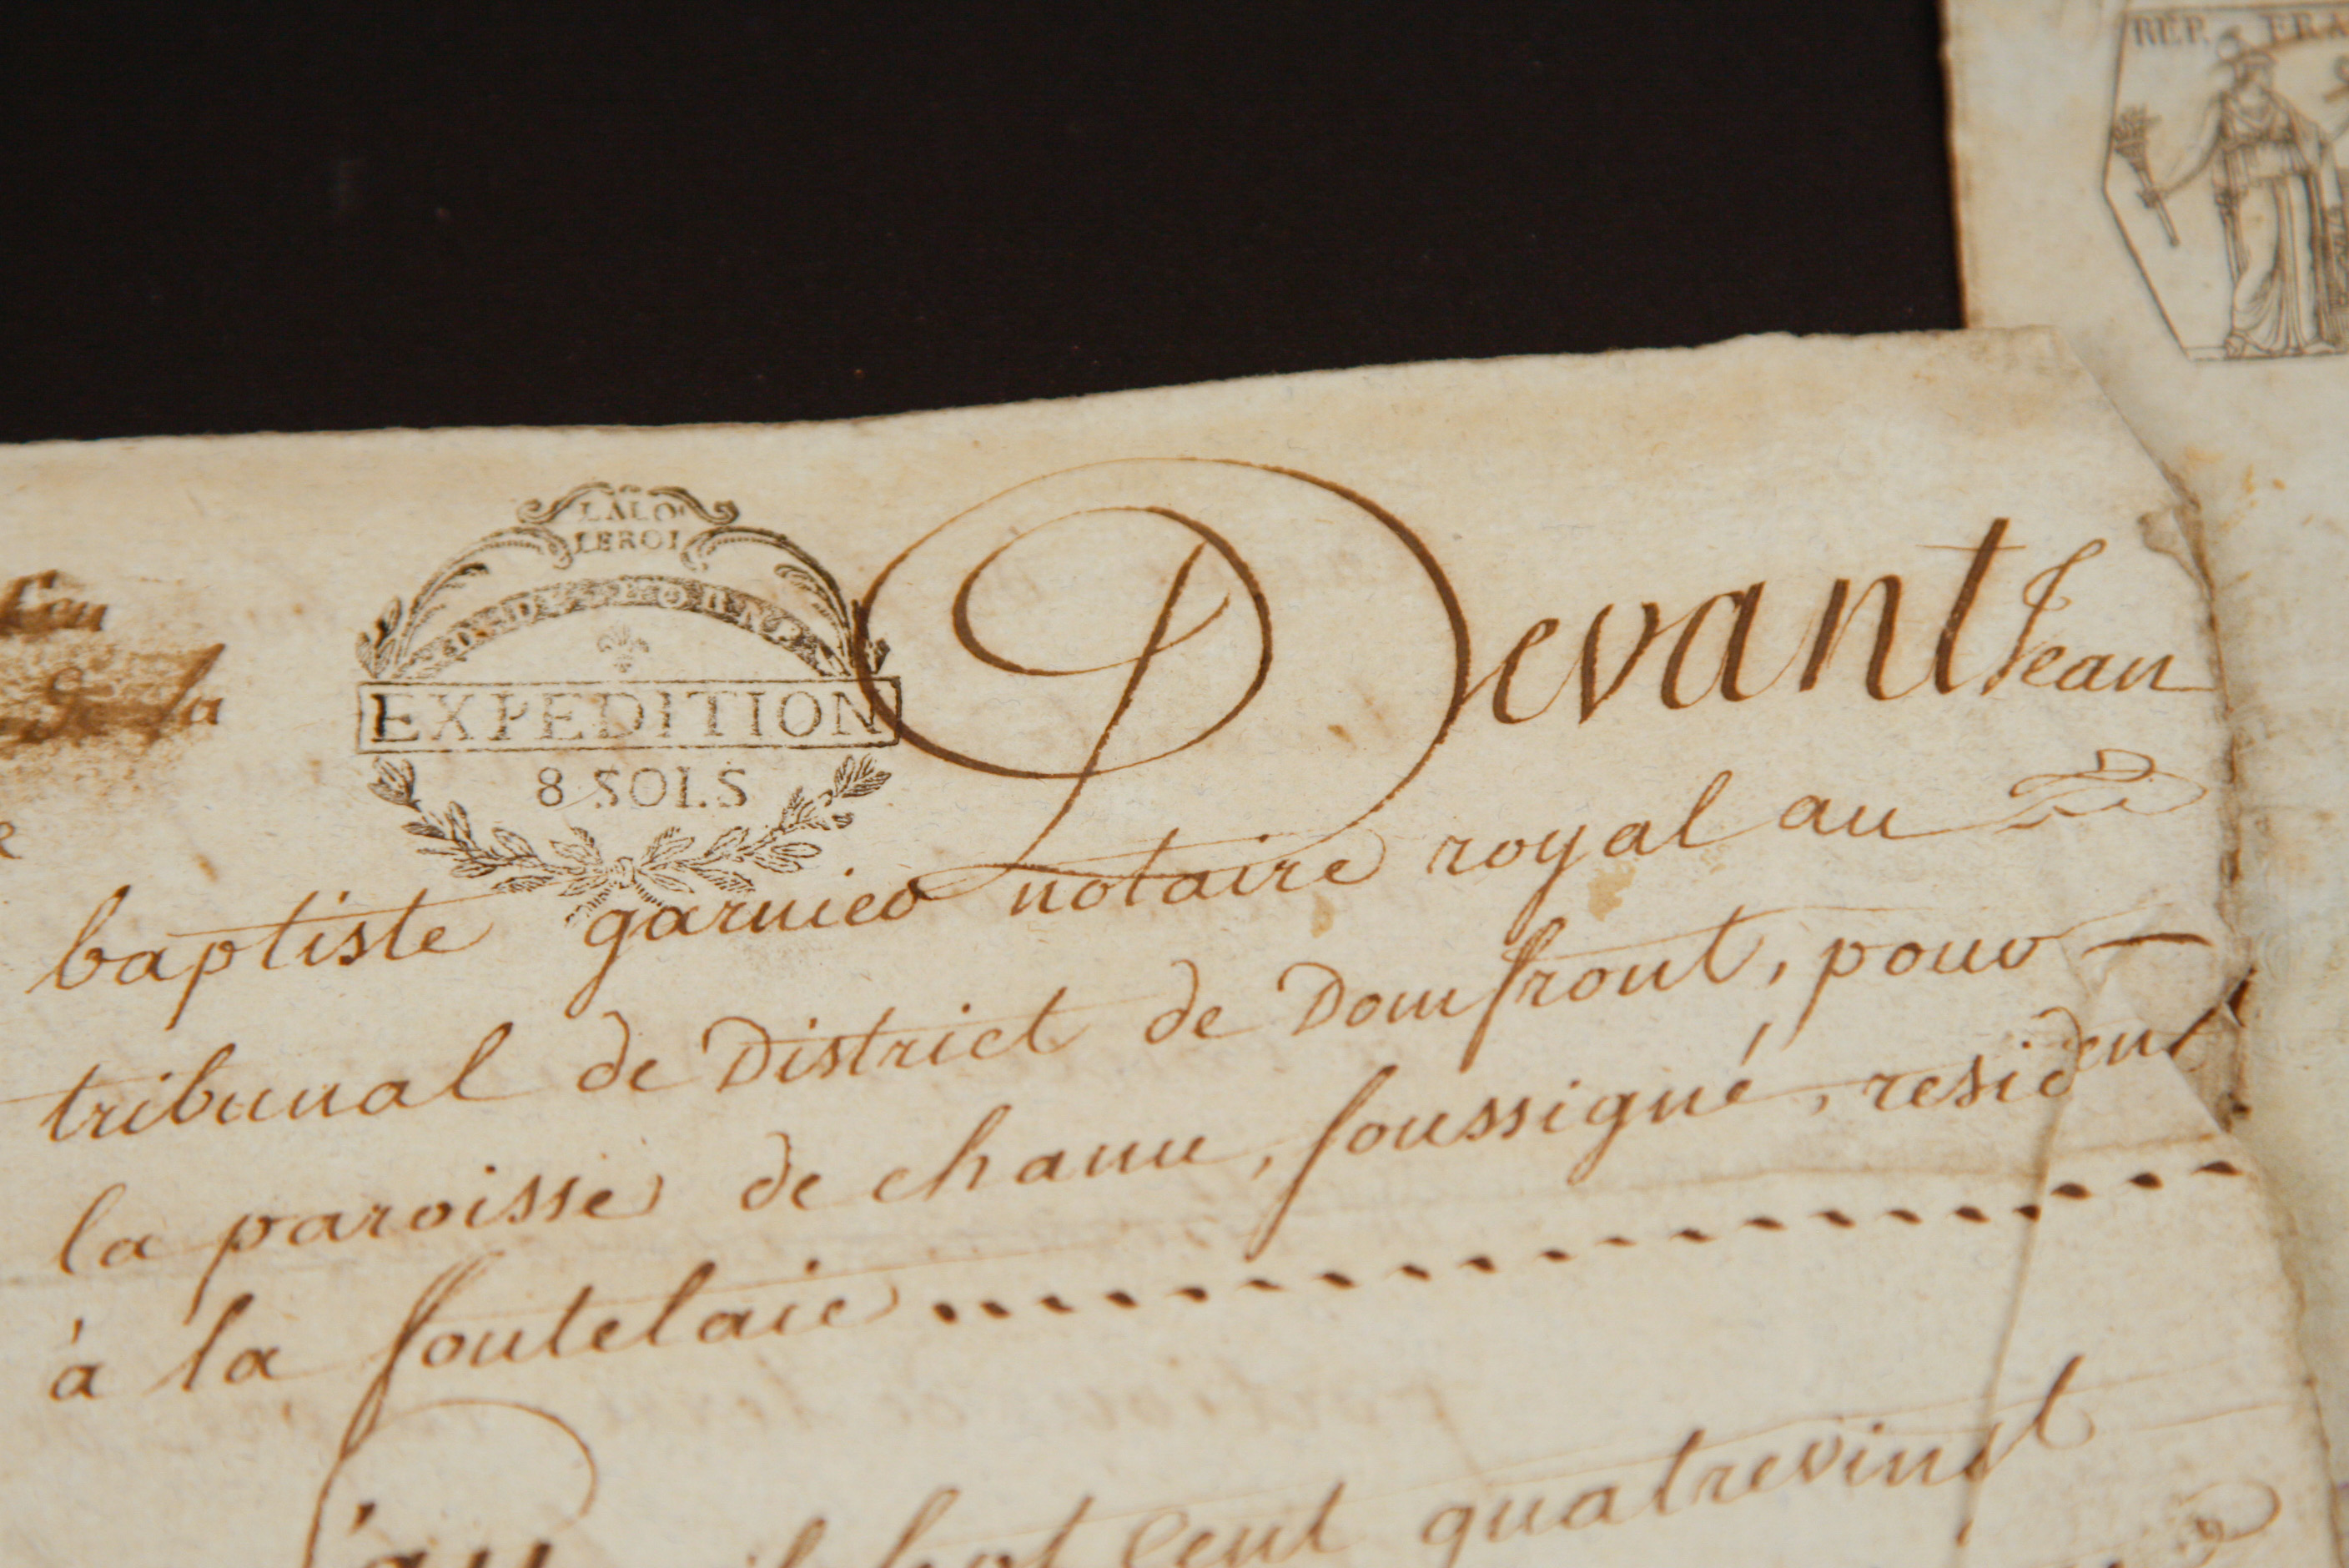 REP. FRA
LA LOI
LE ROI
EXPEDITION
8 SOLS
de la
Devant Jean
baptiste garnier notaire royal au
tribunal de District de Domfront, pour
la paroisse de chanu, soussigné, resident
à la foutelaie
cent quatrevingt